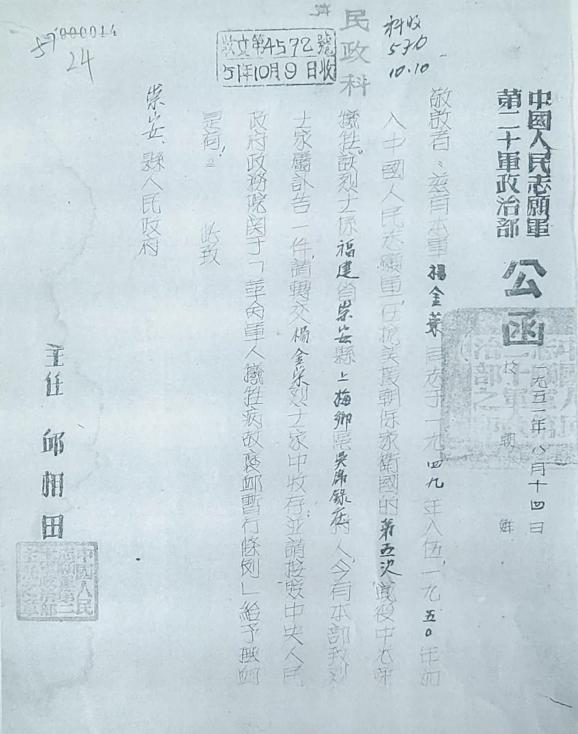 中國人民志願軍
第二十軍政治部
公函
一九五一年八月十四日
於朝鮮
敬啟者：茲有本軍楊金榮同志于一九四九年入伍，一九五〇年加
入中國人民志願軍，在抗美援朝保家衛國的第五次戰役中光榮
犧牲。該烈士係福建省崇安縣上梅鄉人，今有本部致烈
士家屬訃告一件，請轉交楊金荣烈士家中收存，並請按照中央人民
政府政務院关于「革命軍人犧牲病故褒卹暫行條例」給予撫卹
是荷！
此致
崇安縣人民政府
主任 邱相田
中國人民
志願軍第二
十軍政治部
民政科
科收
570
10.10
收文第4572號
51年10月9日收
000014
24